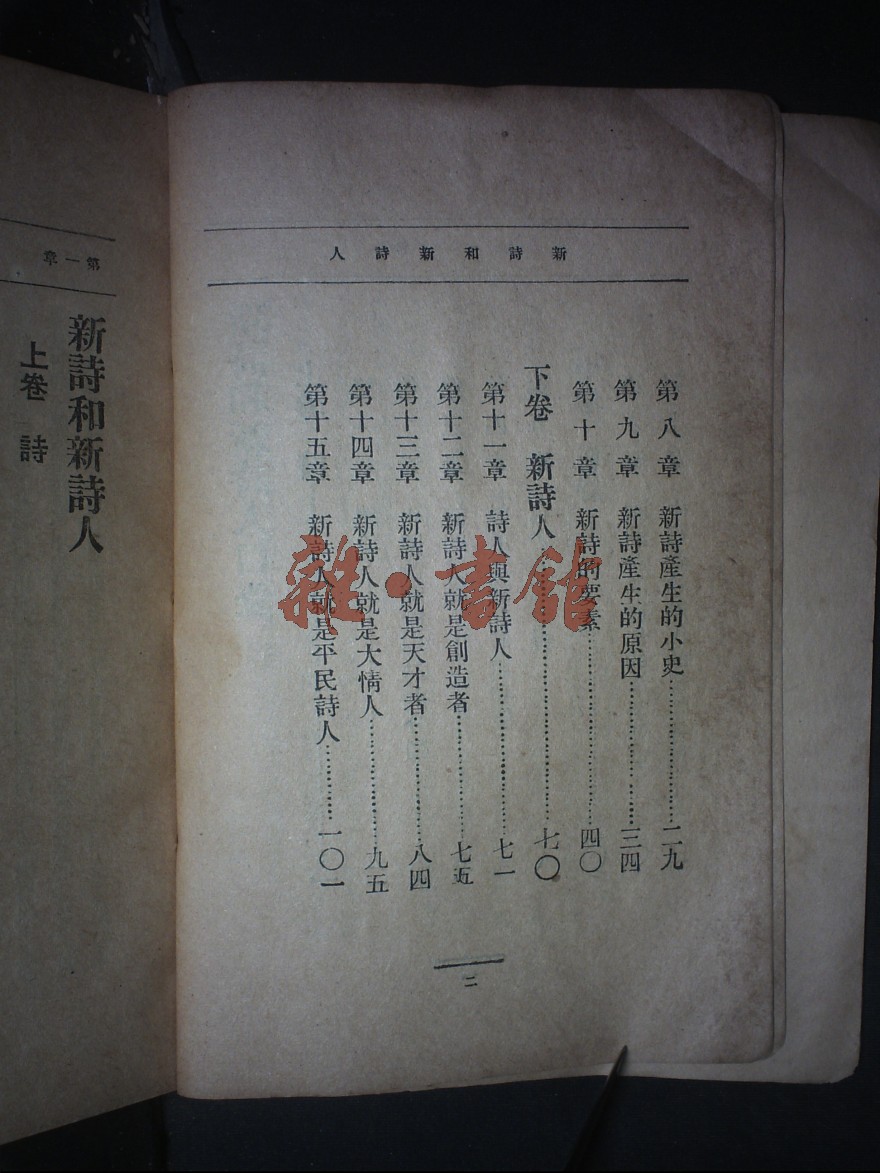 新詩和新詩人
第八章 新詩產生的小史……………二九
第九章 新詩產生的原因……………三四
第十章 新詩的要素……………四〇
下卷 新詩人……………七〇
第十一章 詩人與新詩人……………七一
第十二章 新詩人就是創造者……………七五
第十三章 新詩人就是天才者……………八四
第十四章 新詩人就是大情人……………九五
第十五章 新詩人就是平民詩人……………一〇一
二
第一章
新詩和新詩人
上卷 詩
雜·書館